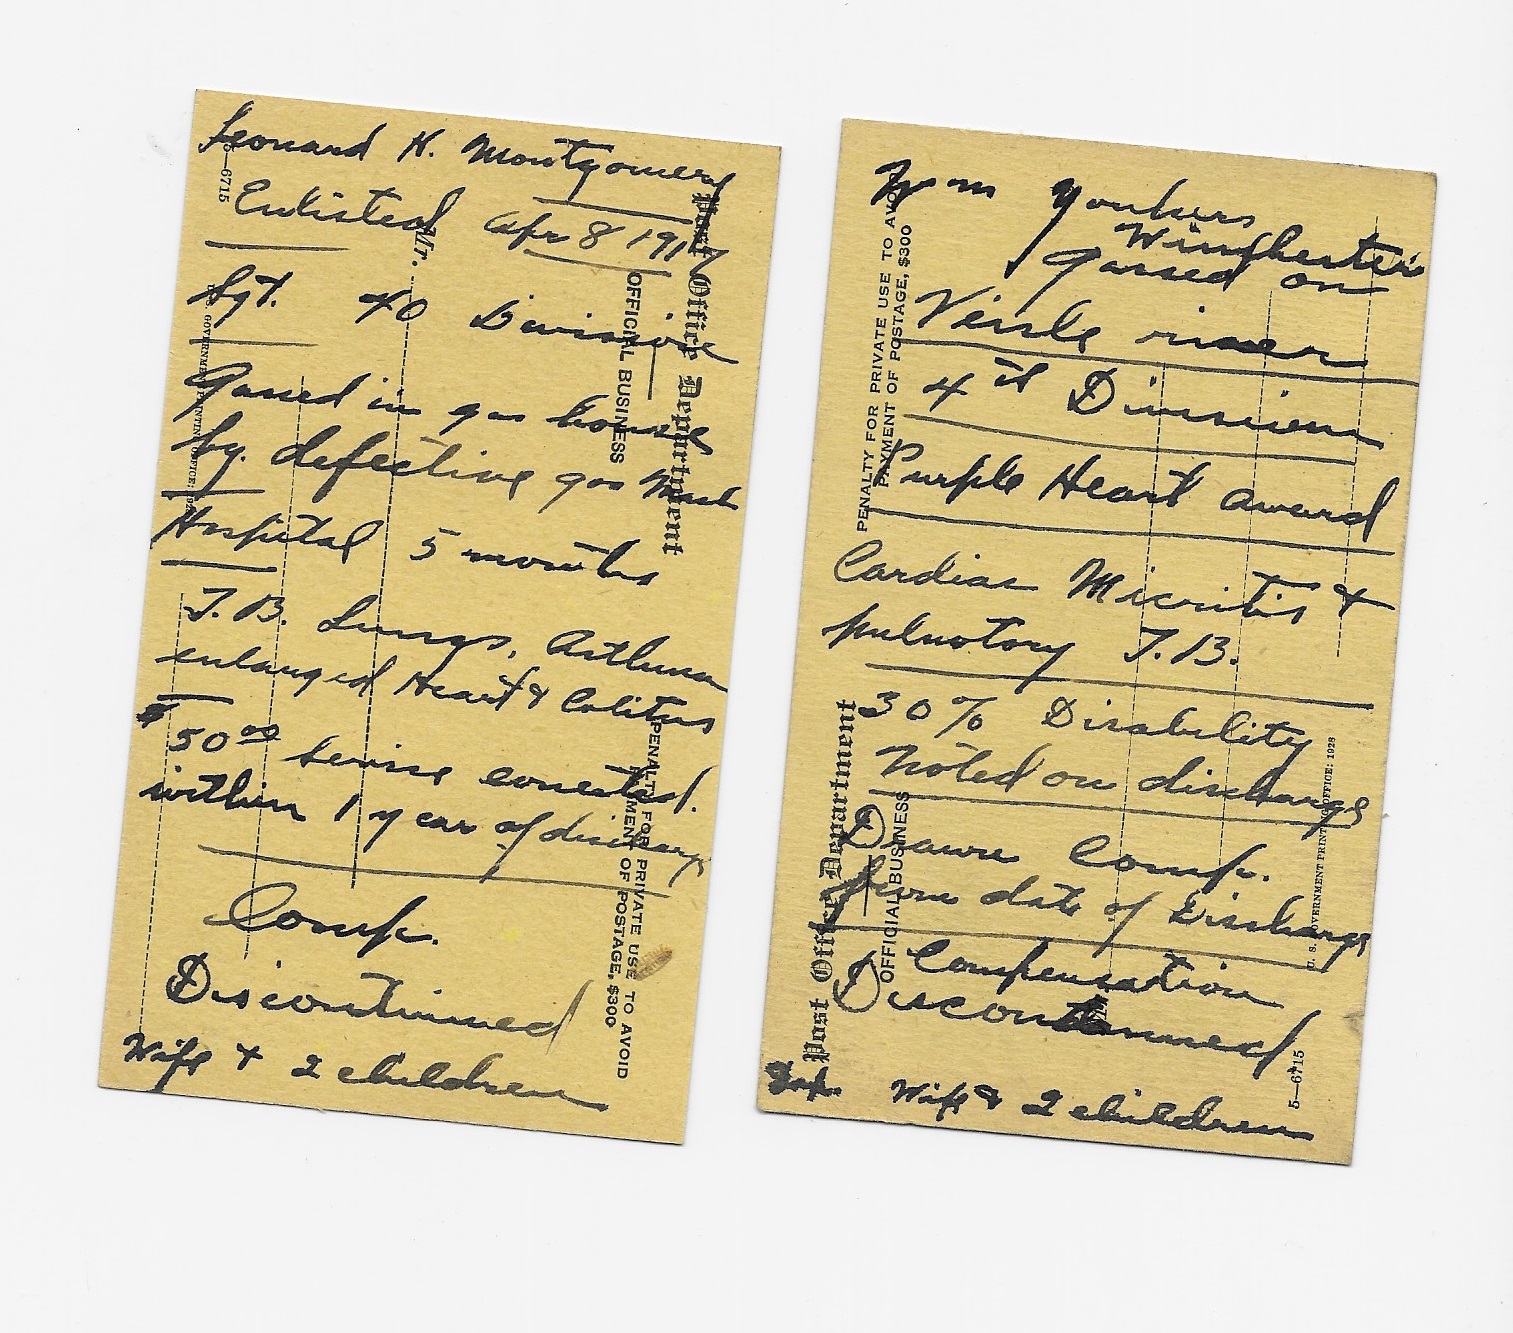 Leonard H. Montgomery
Enlisted Apr 8 1917
Sgt. 40 Division
Gassed in gas house
by defective gas mask
Hospital 5 months
T.B. Lungs, Asthma
enlarged Heart & Colitus
$50.00 Service
within 1 year of discharge
Comp.
Discontinued
Wife & 2 children
5—6715
Mr.
Post Office Department
OFFICIAL BUSINESS
PENALTY FOR PRIVATE USE TO AVOID
PAYMENT OF POSTAGE, $300
GOVERNMENT PRINTING OFFICE:
Wm Yonkers
Winchester
Gassed on
Veisle river
4th Division
Purple Heart award
Cardiac Micritis &
pulmotory T.B.
30% Disability
Noted on discharge
Drawn Comp.
from date of Discharge
Compensation
Discontinued
Wife & 2 children
PENALTY FOR PRIVATE USE TO AVOID
PAYMENT OF POSTAGE, $300
Post Office Department
OFFICIAL BUSINESS
U. S. GOVERNMENT PRINTING OFFICE: 1928
5—6715